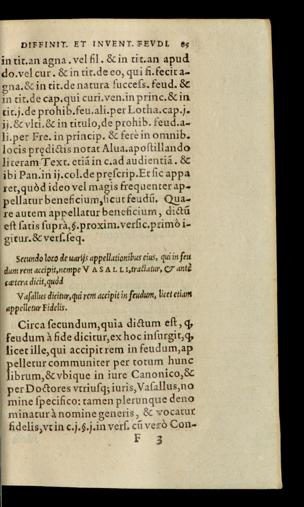 DIFFINIT. ET INVENT. FEVDI 85
in tit. an agna. vel fil. & in tit. an apud
do. vel cur. & in tit. de eo, qui fi. fecit a-
gna. & in tit. de natura succeſs. feud. &
in tit. de cap. qui curi. ven. in princ. & in
tit. j. de prohib. feu. ali. per Lotha. cap. j.
ij. & vlti. & in titulo, de prohib. feud. a-
li. per Fre. in princip. & ferè in omnib.
locis prędictis notat Alua. apostillando
literam Text. etiã in c. ad audientiã. &
ibi Pan. in ij. col. de pręscrip. Et sic appa
ret, quòd ideo vel magis frequenter ap-
pellatur beneficium, licut feudũ. Qua-
re autem appellatur beneficium, dictũ
est satis suprà, §. proxim. versic. primò i-
gitur. & vers. seq.
Secundo loco de uarijs appellationibus eius, qui in feu
dum rem accipit, nempe VASALLI, tractatur, & antè
cætera dicit, quòd
Vasallus dicitur, qui rem accipit in feudum, licet etiam
appelletur Fidelis.
Circa secundum, quia dictum est, q,
feudum à fide dicitur, ex hoc insurgit, q,
licet ille, qui accipit rem in feudum, ap
pelletur communiter per totum hunc
librum, & vbique in iure Canonico, &
per Doctores vtriusq; iuris, Vasallus, no
mine specifico: tamen plerunque deno
minatur à nomine generis, & vocatur
fidelis, vt in c. j. §. j. in vers. cũ verò Con-
F 3